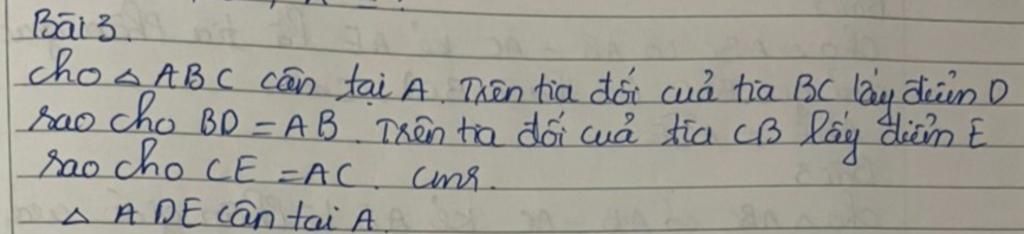 Bài 3.
cho △ ABC cân tại A. Trên tia đối cuả tia BC lấy điểm D
sao cho BD = AB. Trên tia đối cuả tia CB lấy điểm E
sao cho CE = AC. cmr.
△ ADE cân tai A